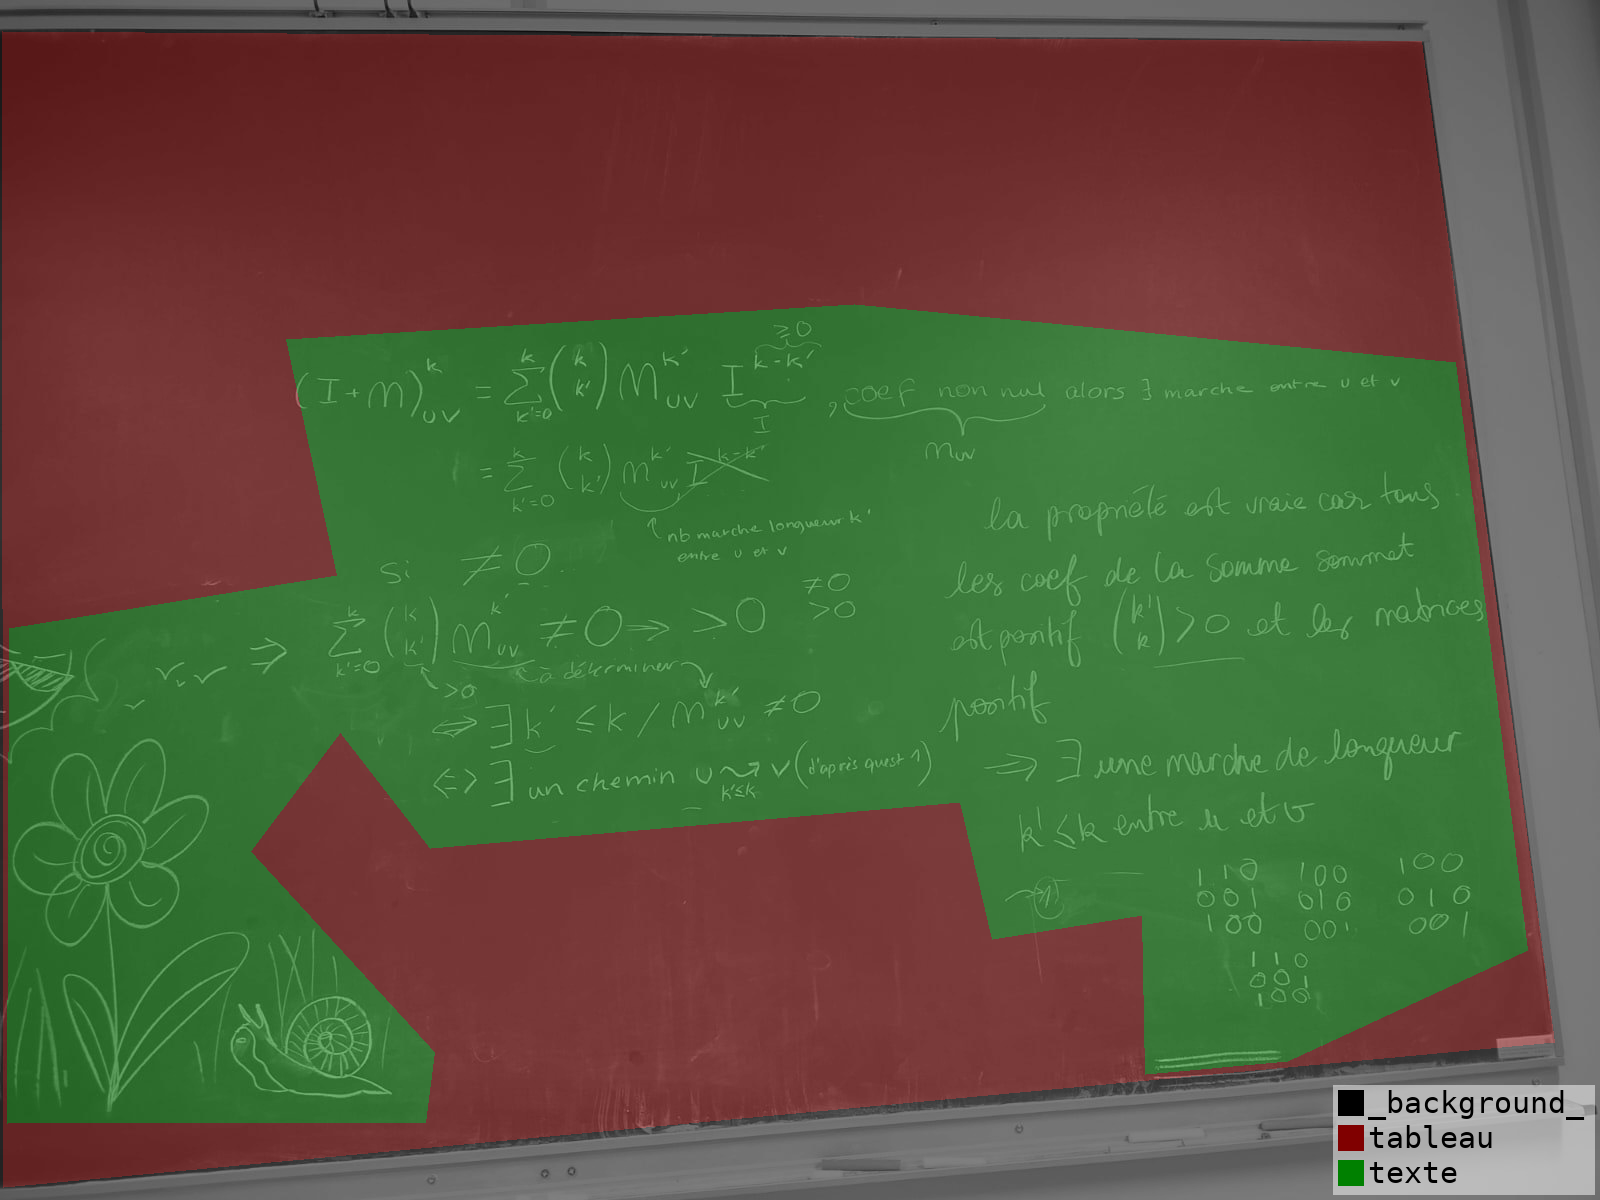 (I+M)^k_uv = Σ_{k'=0}^{k} (k k') M^{k'}_{uv} I^{k-k'} ≥0 , coef non nul alors ∃ marche entre u et v
I
m_uv
= Σ_{k'=0}^{k} (k k') m^{k'}_{uv} I^{k-k'}
nb marche longueur k'
entre u et v
Si ≠0
⇒ Σ_{k'=0}^{k} (k k') m^{k'}_{uv} ≠0 ⇒ >0 ≠0 >0
>0 à déterminer
⇔ ∃ k' ≤ k / m^{k'}_{uv} ≠0
⇔ ∃ un chemin u ⤳ v (d'après quest 1)
k'≤k
la propriété est vraie car tous
les coef de la somme sommet
est positif (k' k) >0 et les matrices
positif
⇒ ∃ une marche de longueur
k' ≤ k entre u et v
110 100 100
001 010 010
100 001 001
110
001
100
_background_
tableau
texte